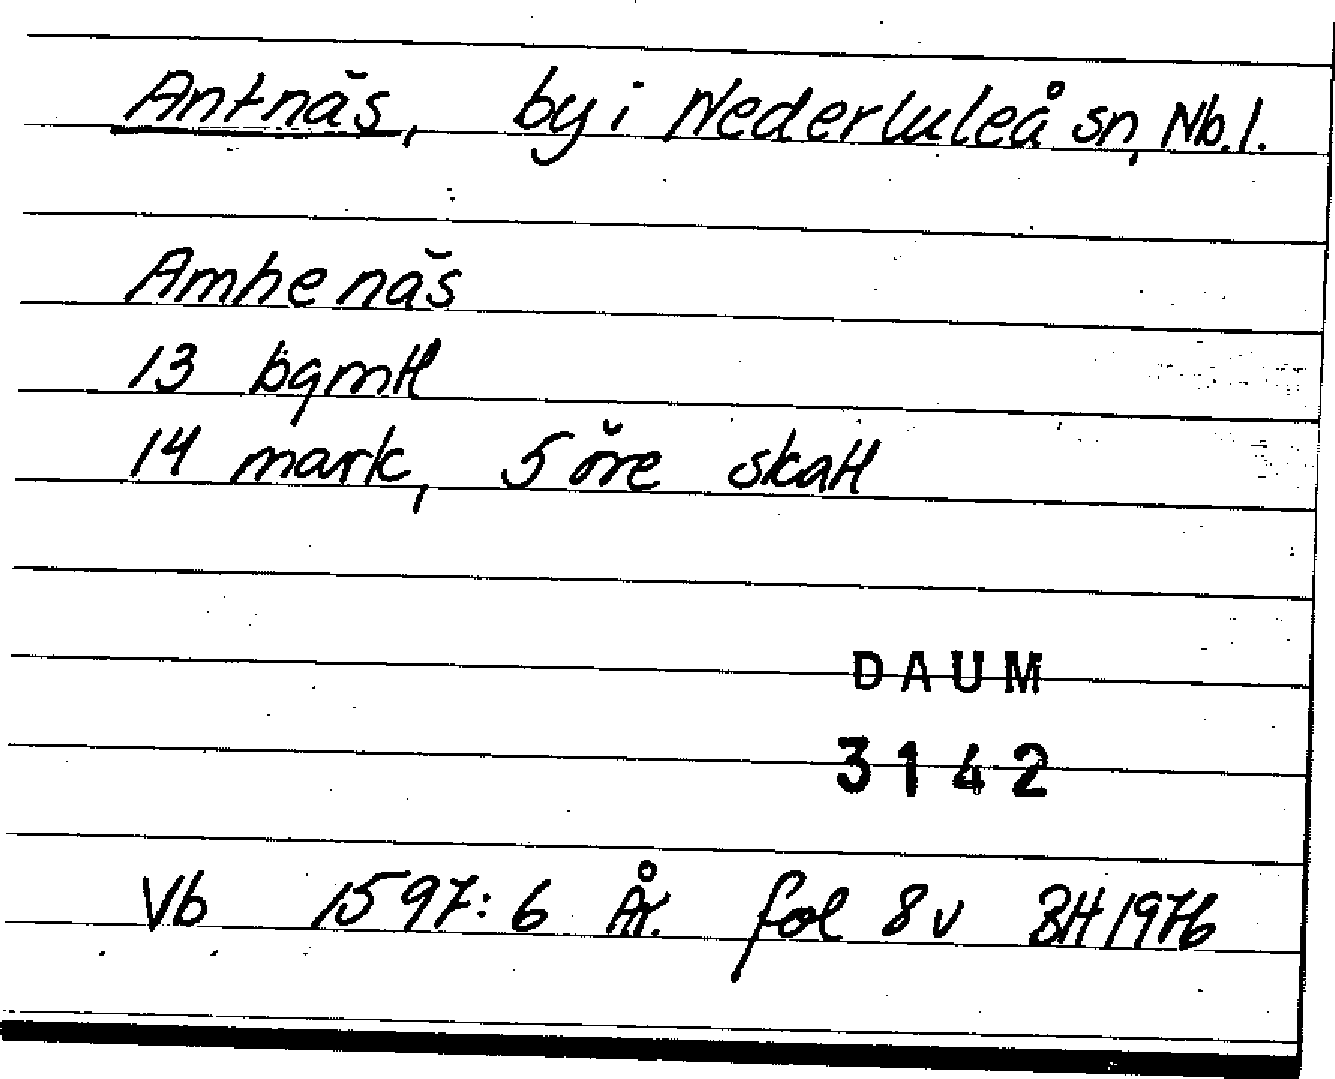 Antnäs, by i Nederluleå sn, Nb.l.
Amhenäs
13 bgmtl
14 mark, 5 öre skatt
DAUM
3142
Vb 1597:6 År. fol 8v BH 1976